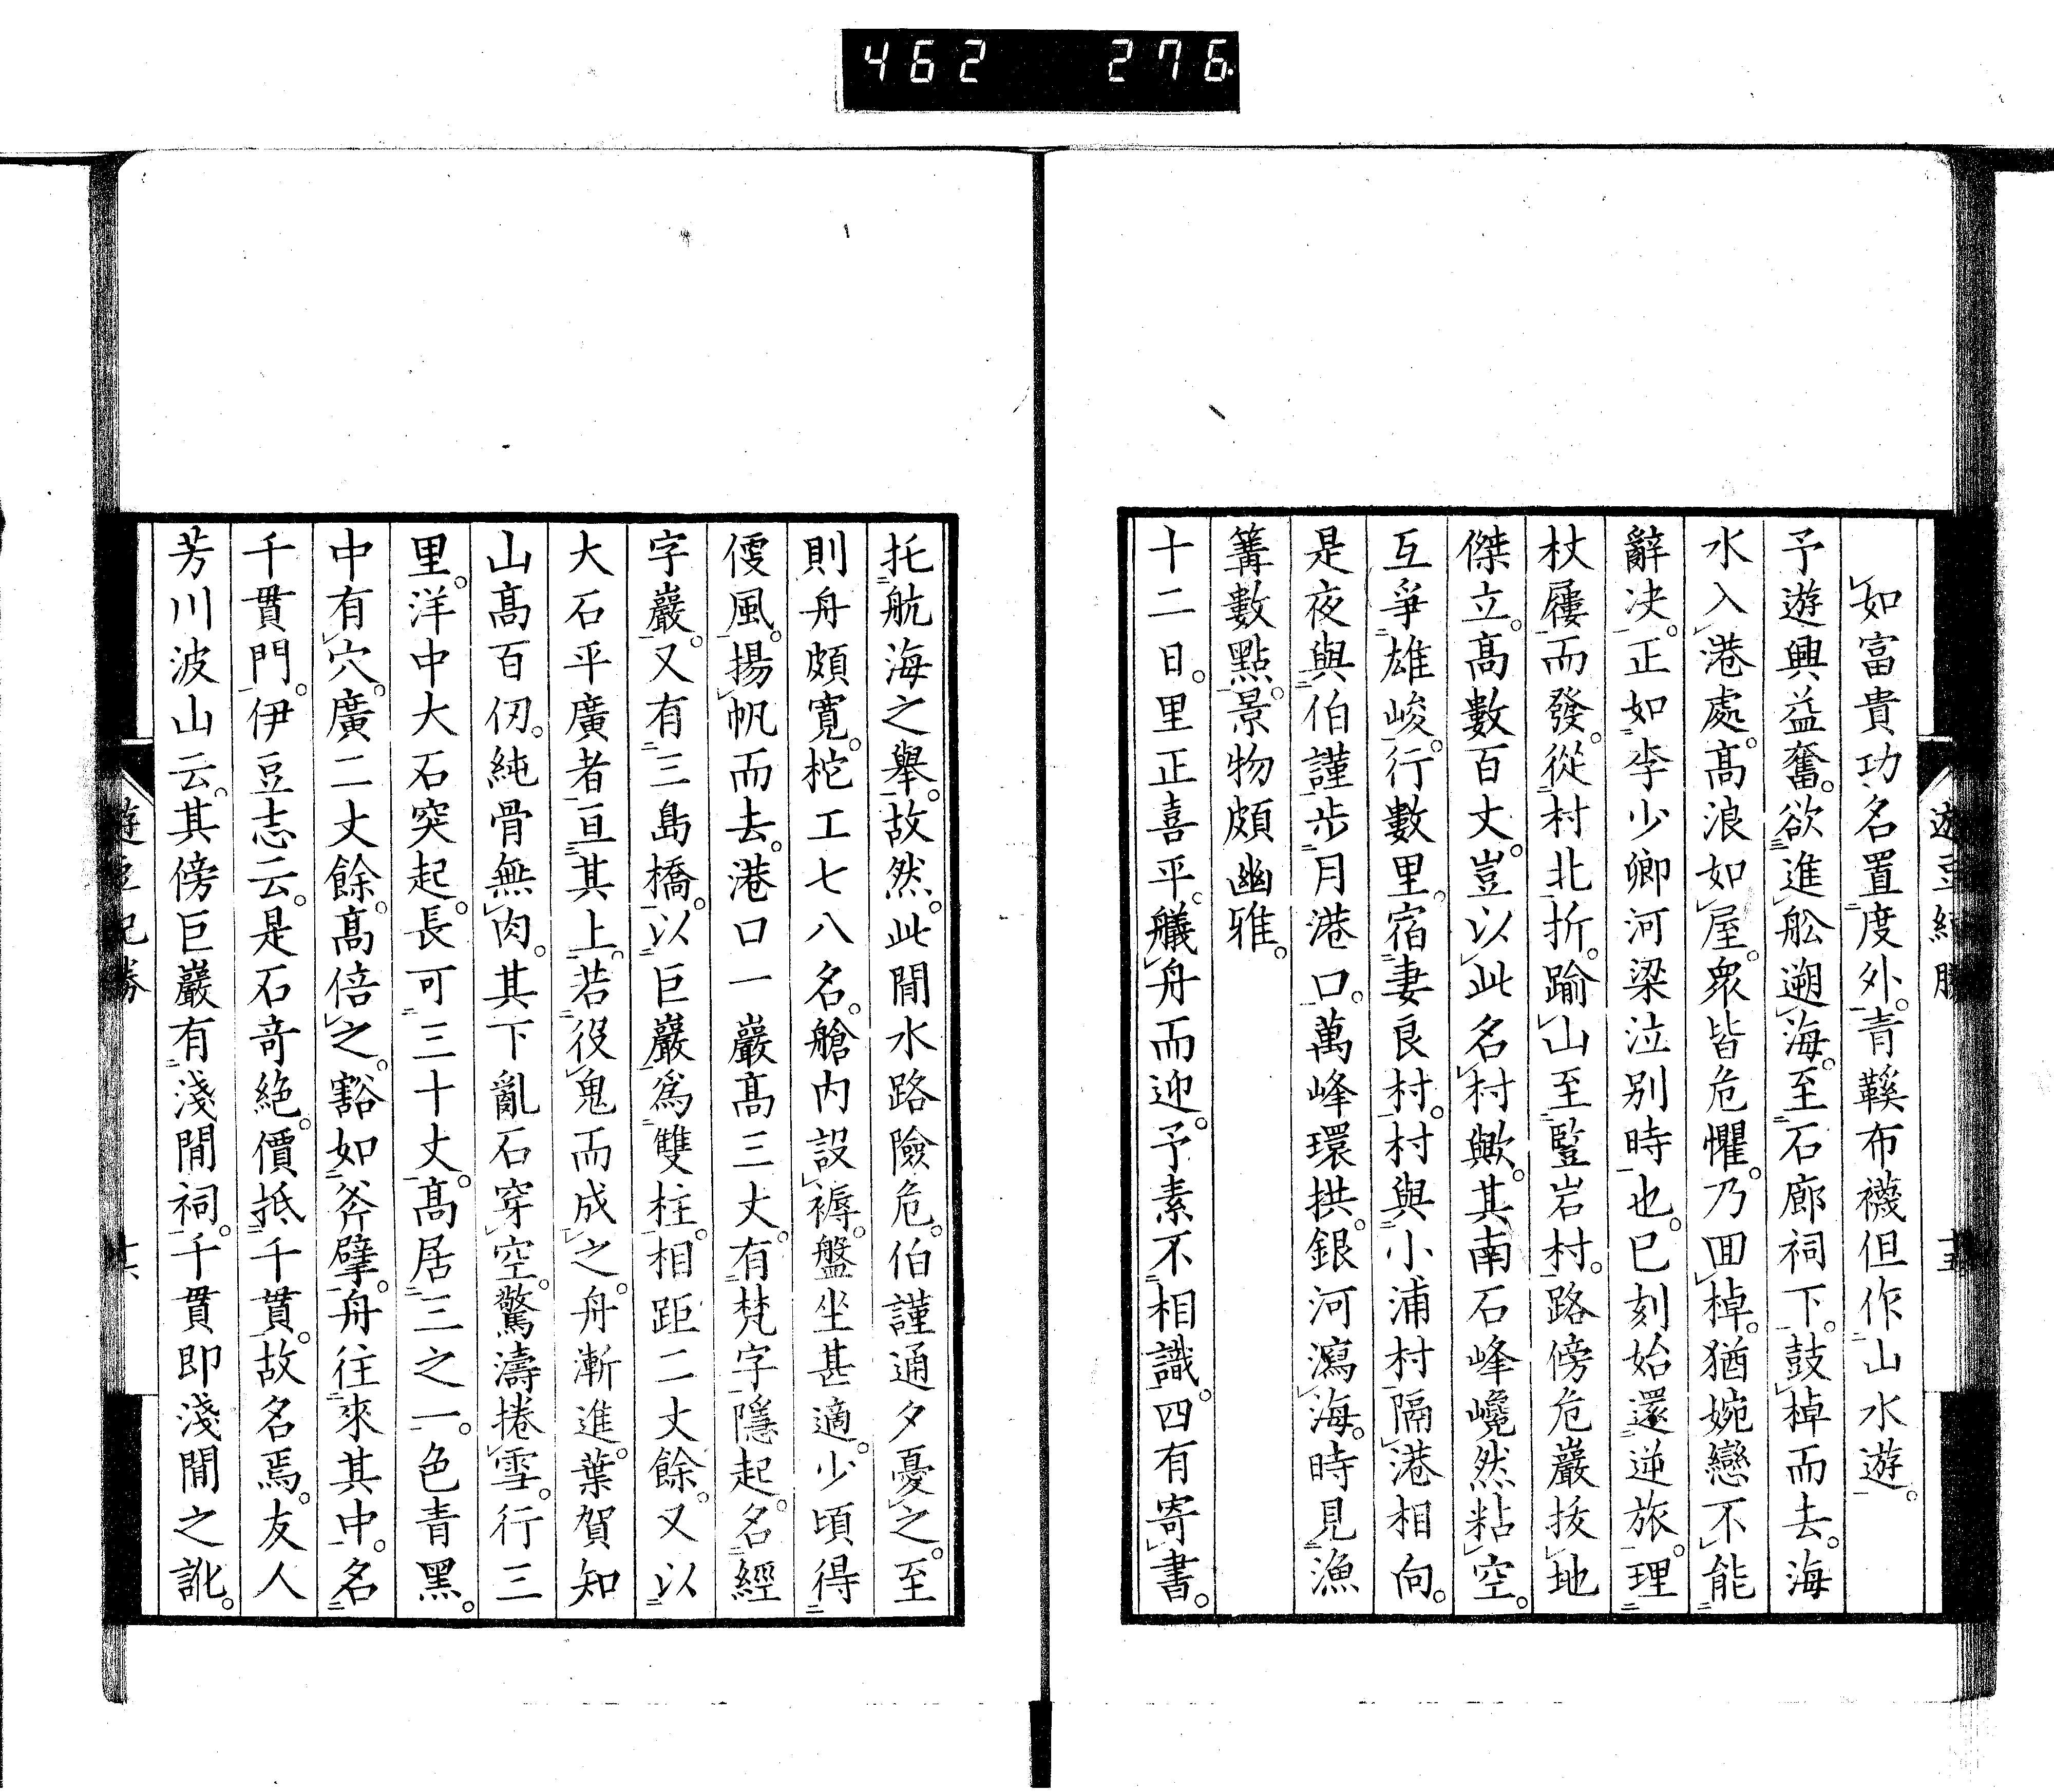 462 276.
如富貴功名置度外。青鞵布襪但作山水遊。
予遊興益奮。欲進舩遡海。至石廊祠下。鼓棹而去。海
水入港處。髙浪如屋。衆皆危懼。乃囬棹。猶婉戀不能
辭决。正如李少卿河梁泣别時也。巳刻始還逆旅。理
杖屨而發。從村北折。踰山至豎岩村。路傍危巖拔地
傑立。髙數百丈。豈以此名村歟。其南石峰巉然粘空。
互爭雄峻。行數里。宿妻良村。村與小浦村隔港相向。
是夜與伯謹步月港口。萬峰環拱。銀河瀉海。時見漁
篝數點。景物頗幽雅。
十二日。里正喜平。艤舟而迎。予素不相識。四有寄書。
遊豆紀勝
十五
托航海之舉。故然。此間水路險危。伯謹通夕憂之。至
則舟頗寬。柁工七八名。艙内設褥。盤坐甚適。少頃得
便風。揚帆而去。港口一巖髙三丈。有梵字隱起。名經
字巖。又有三島橋。以巨巖爲雙柱。相距二丈餘。又以
大石平廣者亘其上。若役鬼而成之。舟漸進。葉賀知
山髙百仭。純骨無肉。其下亂石穿空。驚濤捲雪。行三
里。洋中大石突起。長可三十丈。髙居三之一。色青黑。
中有穴。廣二丈餘。髙倍之。豁如斧擘。舟往來其中。名
千貫門。伊豆志云。是石奇絶。價抵千貫。故名焉。友人
芳川波山云。其傍巨巖有淺間祠。千貫即淺間之訛。
遊豆紀勝
十六